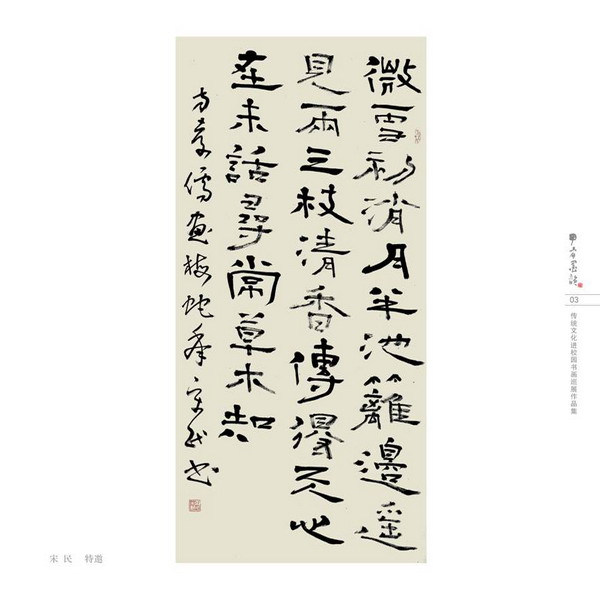 微雪初消月半池籬邊遙
見兩三枝清香傳得天心
在未話尋常草木知
方孝孺画梅蛇年宋民书
03
传统文化进校园书画巡展作品集
宋 民 特邀